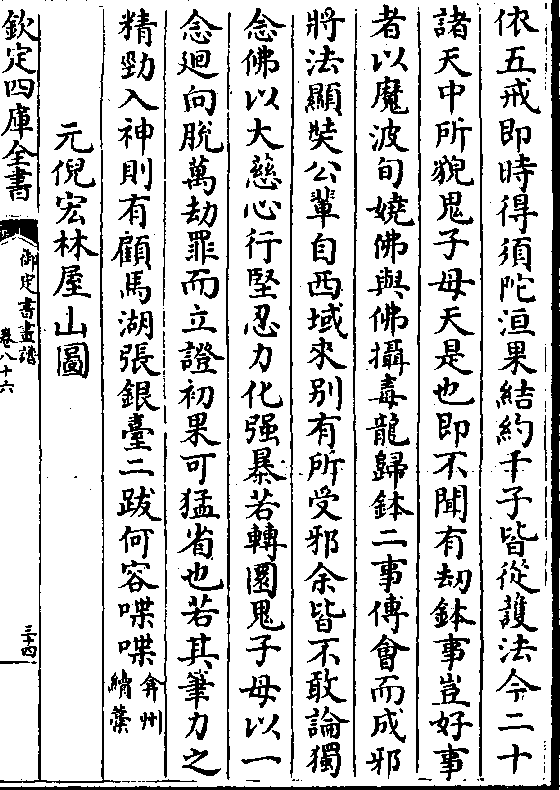 依五戒即時得須陀洹果結約千子皆從護法今二十
諸天中所貌鬼子母天是也即不聞有刼鉢事豈好事
者以魔波旬嬈佛與佛攝毒龍歸鉢二事傅會而成邪
將法顯奘公輩自西域來别有所受邪余皆不敢論獨
念佛以大慈心行堅忍力化强暴若轉圜鬼子母以一
念廻向脫萬劫罪而立證初果可猛省也若其筆力之
精勁入神則有顧馬湖張銀臺二跋何容喋喋弇州續藁
元倪宏林屋山圖
欽定四庫全書
御定書畫譜
卷八十六
三十四